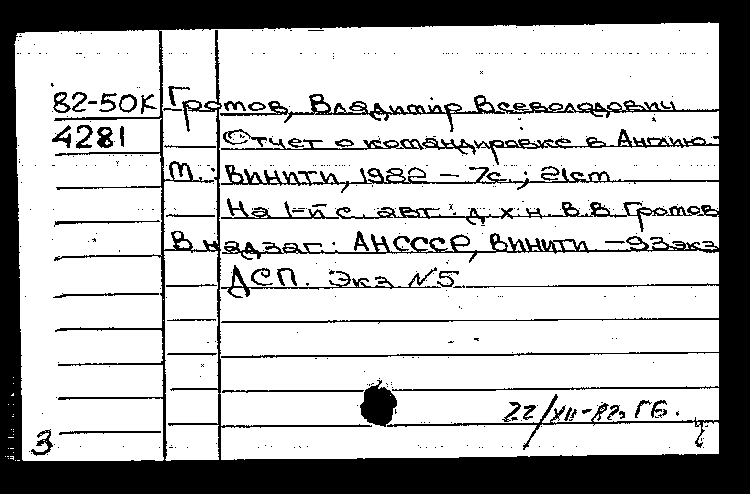 82-50К Громов, Владимир Всеволодович
4281 Отчет о командировке в Англию.-
М.: ВИНИТИ, 1982 – 7с.; 21см
На 1-й с. авт: д.х.н. В.В Громов
В надзаг: АНСССР, ВИНИТИ – 93экз
ДСП. Экз N5
22/XII-82г ГБ.
3